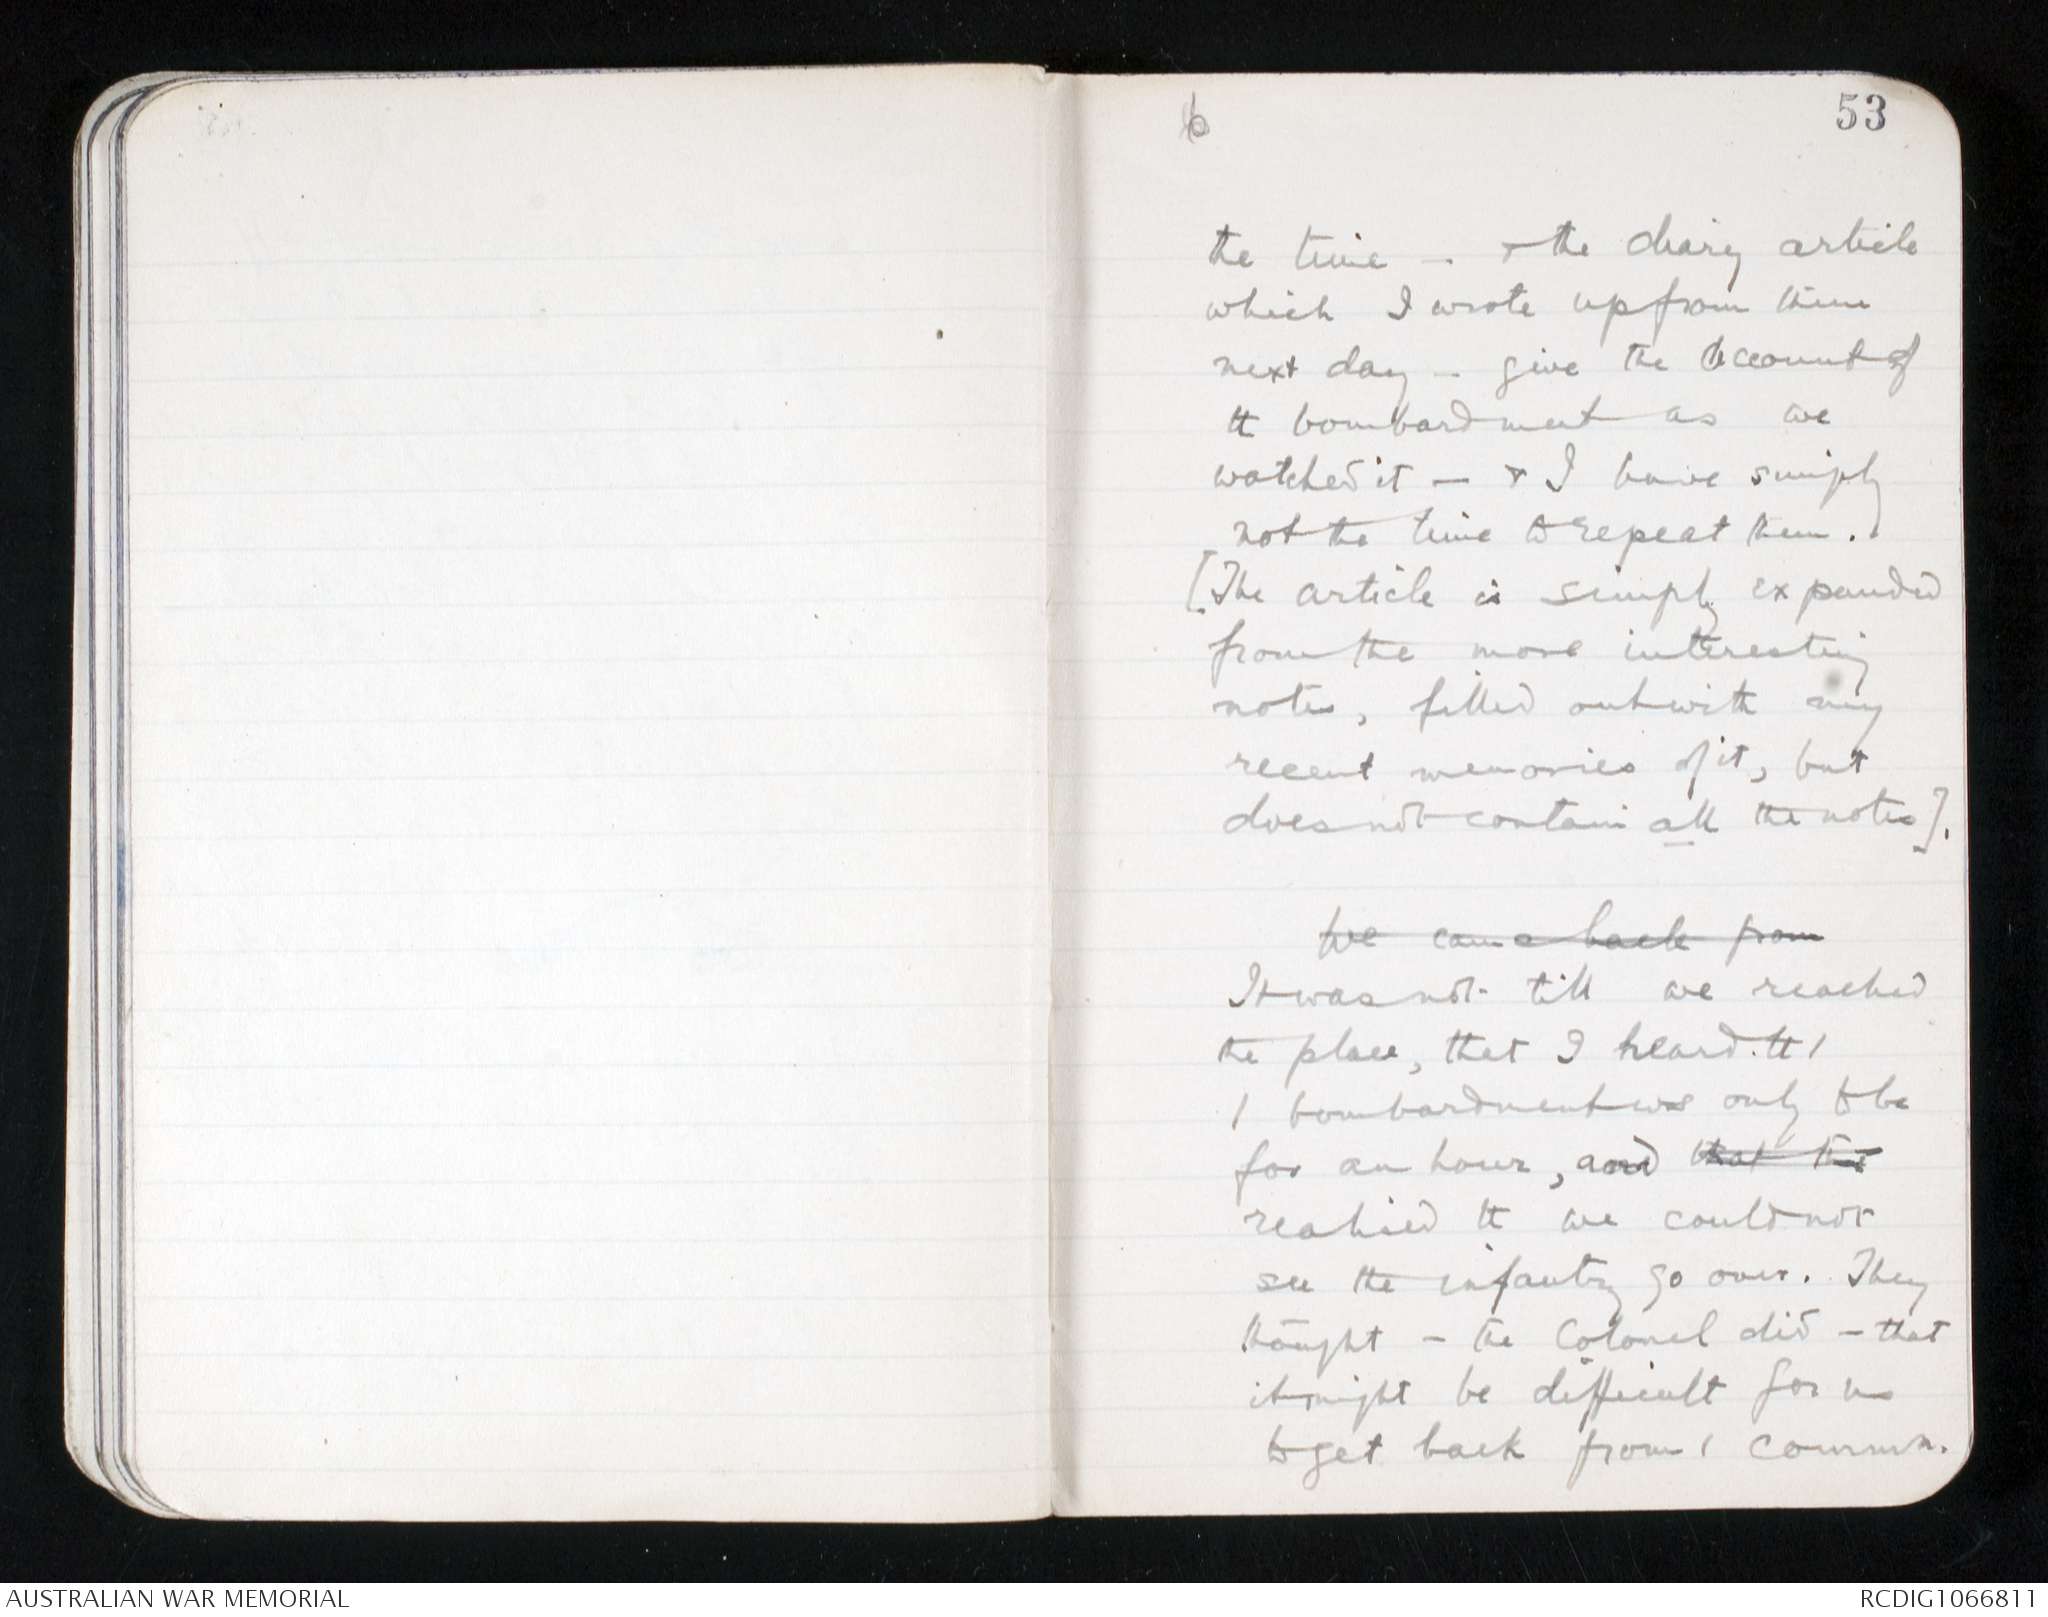 6
53
the time - . & the diary article
which I wrote up from them
next day - give the account of
tt bombardment as we
watched it - & I have simply
not the time to repeat them.
[The article is simply expanded
from the more interesting
notes, filled out with my
recent memories of it, but
does not contain all the notes].
We came back from
It was not till we reached
the place, that I heard tt /
/ bombardment was only to be
for an hour, and that the
realised tt we could not
see the infantry go over. They
thought - the Colonel did - that
it might be difficult for us
to get back from / commn.
AUSTRALIAN WAR MEMORIAL
RCDIG1066811